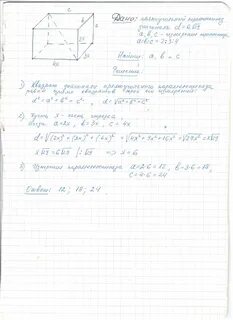 Дано: прямоугольный параллелепипед
диагональ d = 6√29
a, b, c - измерения параллелепипеда
a:b:c = 2:3:4
Найти: a, b, c
Решение.
1) Квадрат диагонали прямоугольного параллелепипеда
равен сумме квадратов трех его измерений:
d² = a² + b² + c², d = √a² + b² + c²
2) Пусть x -
Тогда a = 2x, b = 3x, c = 4x
d = √(2x)² + (3x)² + (4x)² = √4x² + 9x² + 16x² = √29x² = x√29
x√29 = 6√29 | : √29 => x = 6
3) Измерения параллелепипеда a = 2·6 = 12, b = 3·6 = 18,
c = 4·6 = 24
Ответ: 12; 18; 24